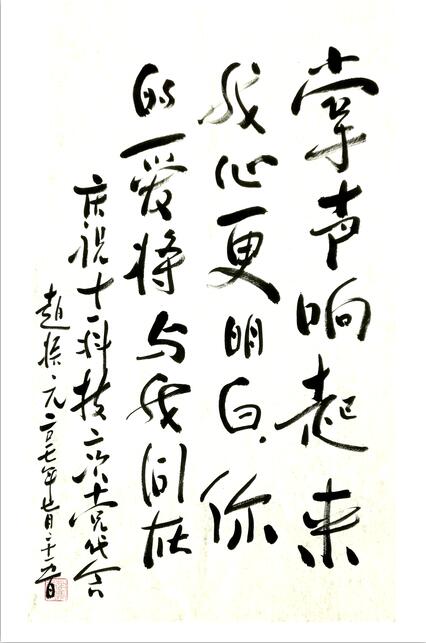 掌声响起来
我心更明白你
的爱将与我同在
庆祝十一科技二次党代会
赵振元二〇一七年七月二十日